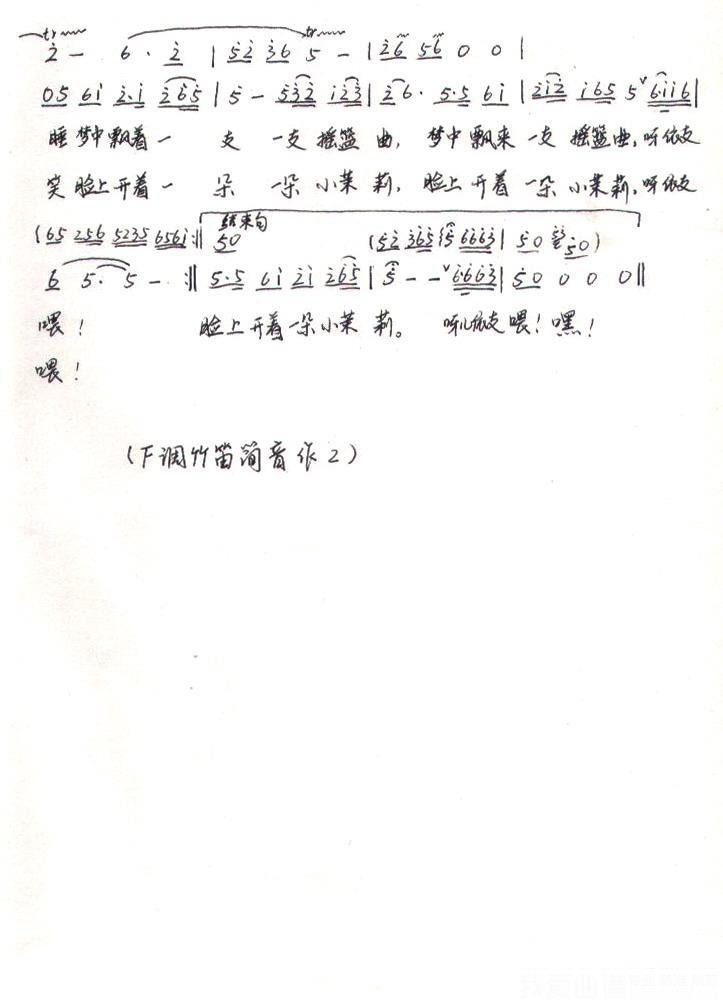 tr tr
2 - 6 · 2 | 52 36 5 - | 26 56 0 0 |
05 61 2·1 265 | 5 - 532 123 | 26· 5·5 61 | 212 165 5 ᵛ6·116 |
睡梦中飘着一 支 一支 摇篮 曲, 梦中飘来 一支 摇篮曲,呀依支
笑 脸上开着一 朵 一朵 小茉 莉, 脸上 开着 一朵 小茉莉,呀依支
(65 256 5235 6561 :‖ 结束句 50 (52 365 35 6663 | 50 50)
6 5· 5 - :‖ 5·5 61 21 265 | 5 - - ᵛ6663 | 50 0 0 0 ‖
喂! 脸上开着一朵小茉 莉。 呀儿依支 喂! 嘿!
喂!
(下调竹笛筒音作2)